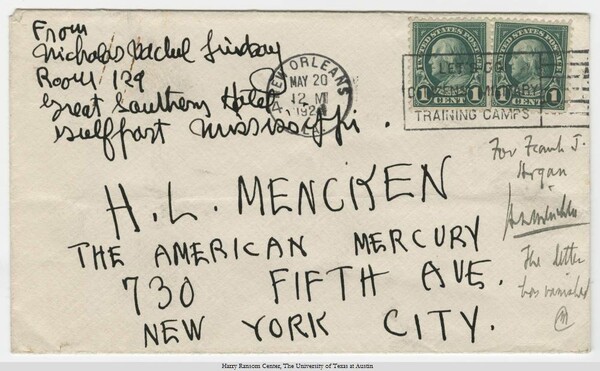 From
Nicholas Vachel Lindsay
Room 129
Great Southern Hotel
Gulfport Mississippi.
NEW ORLEANS
MAY 20
12 M
192
LA.
UNITED STATES POSTAGE
1 CENT 1
UNITED STATES POSTAGE
1 CENT 1
LET'S GO
CITIZENS MILITARY
TRAINING CAMPS
H. L. MENCKEN
THE AMERICAN MERCURY
730 FIFTH AVE.
NEW YORK CITY.
For Frank J.
Hogan
HLMencken
The letter
has vanished
M
Harry Ransom Center, The University of Texas at Austin